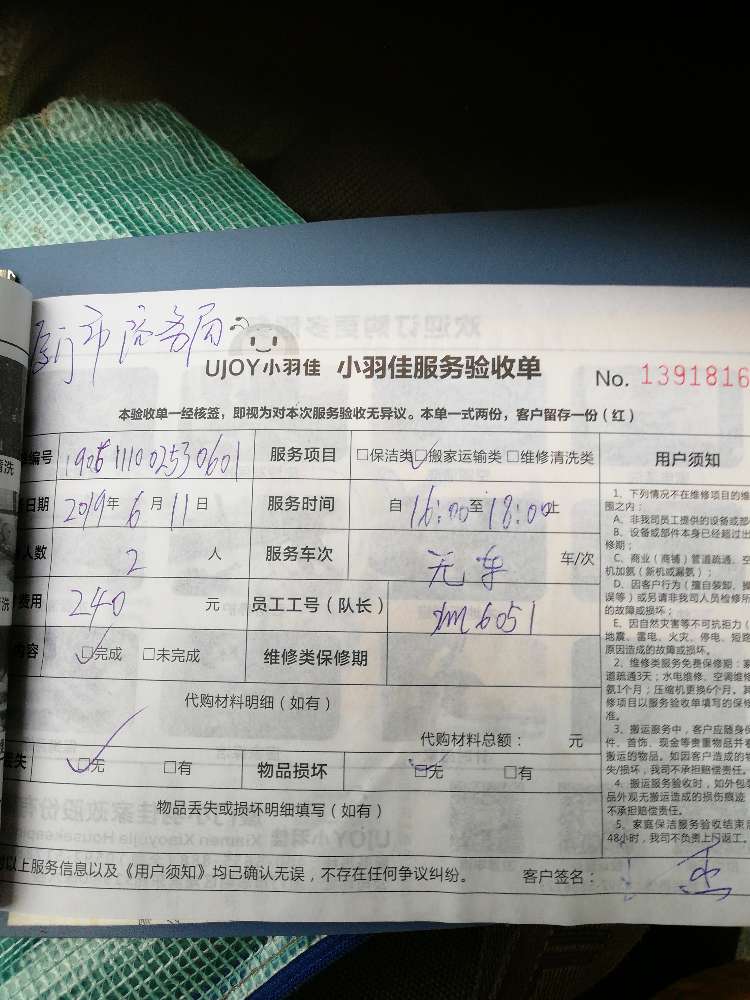 UJOY小羽佳 小羽佳服务验收单 No. 1391816
本验收单一经核签，即视为对本次服务验收无异议。本单一式两份，客户留存一份（红）
编号 服务项目 □保洁类 □搬家运输类 □维修清洗类 用户须知
日期 2019年 6月 11日 服务时间 自 16:00至 18:00止
人数 2 人 服务车次 无车 车/次
费用 240 元 员工工号（队长） 6051
内容 □完成 □未完成 维修类保修期
代购材料明细（如有）
代购材料总额： 元
丢失 □无 □有 物品损坏 □无 □有
物品丢失或损坏明细填写（如有）
以上服务信息以及《用户须知》均已确认无误，不存在任何争议纠纷。 客户签名：
1、下列情况不在维修项目的维
围之内：
A、非我司员工提供的设备或部
B、设备或部件本身已经超过出
修期；
C、商业（商铺）管道疏通、空
机加氨（新机或漏氨）；
D、因客户行为（擅自拆卸、操
误等）或另请非我司人员检修所
的故障或损坏；
E、因自然灾害等不可抗拒力（
地震、雷电、火灾、停电、短路
原因造成的故障或损坏。
2、维修类服务免费保修期：
道疏通3天；水电维修、空调维修
氨1个月；压缩机更换6个月。其
修项目以服务验收单填写的保修
准。
3、搬运服务中，客户应随身保
件、首饰、现金等贵重物品并看
搬运的物品。如因客户造成的物
失/损坏，我司不承担赔偿责任。
4、搬运服务验收时，如外包装
品外观无搬运造成的损伤痕迹，
不承担赔偿责任。
5、家庭保洁服务验收结束后
48小时，我司不负责上门返工。